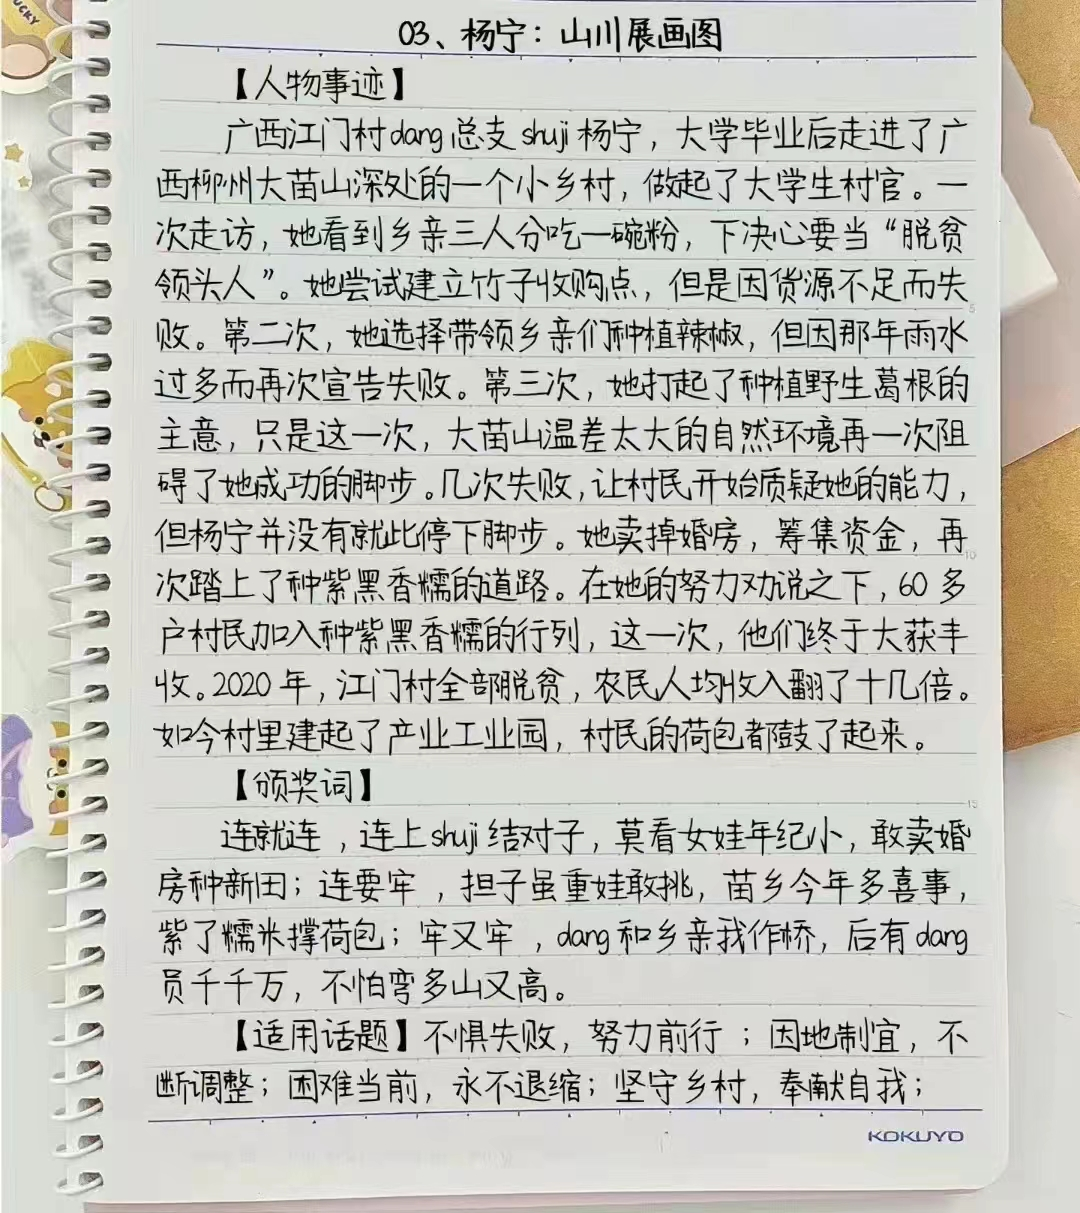 03、杨宁：山川展画图
【人物事迹】
广西江门村dang总支shuji杨宁，大学毕业后走进了广
西柳州大苗山深处的一个小乡村，做起了大学生村官。一
次走访，她看到乡亲三人分吃一碗粉，下决心要当“脱贫
领头人”。她尝试建立竹子收购点，但是因货源不足而失
败。第二次，她选择带领乡亲们种植辣椒，但因那年雨水
过多而再次宣告失败。第三次，她打起了种植野生葛根的
主意，只是这一次，大苗山温差太大的自然环境再一次阻
碍了她成功的脚步。几次失败，让村民开始质疑她的能力，
但杨宁并没有就此停下脚步。她卖掉婚房，筹集资金，再
次踏上了种紫黑香糯的道路。在她的努力劝说之下，60多
户村民加入种紫黑香糯的行列，这一次，他们终于大获丰
收。2020年，江门村全部脱贫，农民人均收入翻了十几倍。
如今村里建起了产业工业园，村民的荷包都鼓了起来。
【颁奖词】
连就连，连上shuji结对子，莫看女娃年纪小，敢卖婚
房种新田；连要牢，担子虽重娃敢挑，苗乡今年多喜事，
紫了糯米撑荷包；牢又牢，dang和乡亲我作桥，后有dang
员千千万，不怕弯多山又高。
【适用话题】不惧失败，努力前行；因地制宜，不
断调整；困难当前，永不退缩；坚守乡村，奉献自我；
KOKUYO
5
10
15
UCKY